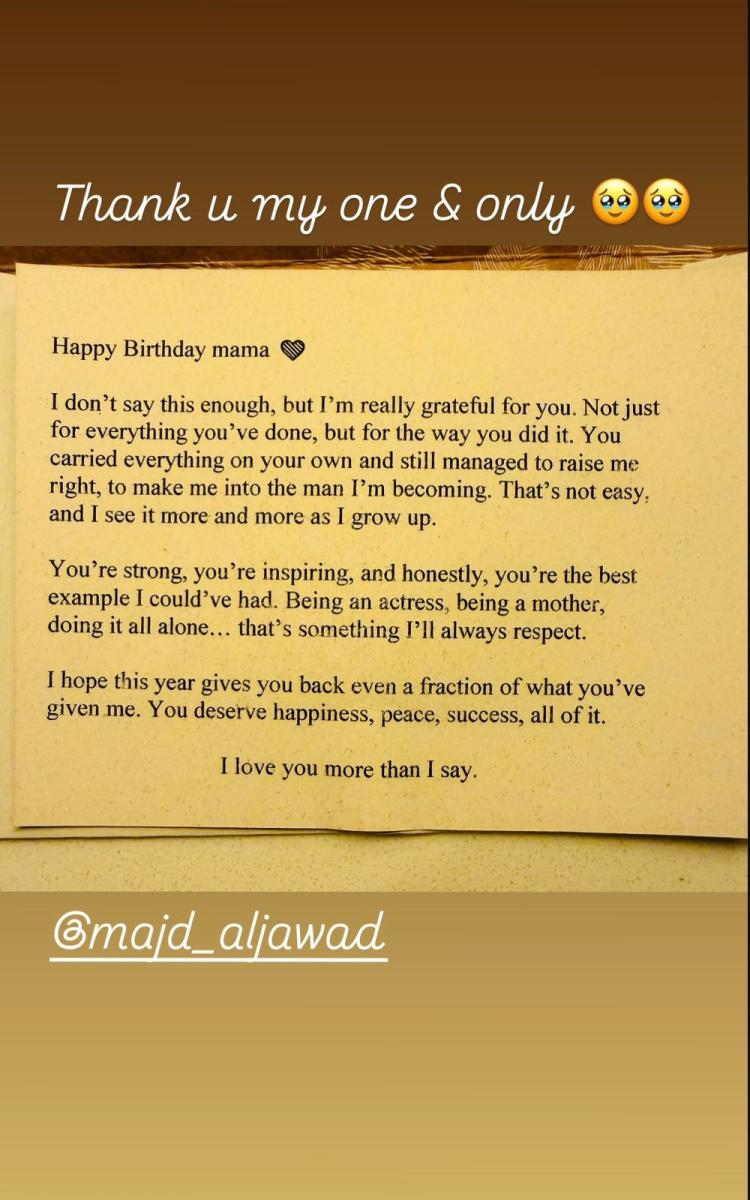 Thank u my one & only 🥹🥹
Happy Birthday mama
I don't say this enough, but I'm really grateful for you. Not just
for everything you've done, but for the way you did it. You
carried everything on your own and still managed to raise me
right, to make me into the man I'm becoming. That's not easy,
and I see it more and more as I grow up.
You're strong, you're inspiring, and honestly, you're the best
example I could've had. Being an actress, being a mother,
doing it all alone… that's something I'll always respect.
I hope this year gives you back even a fraction of what you've
given me. You deserve happiness, peace, success, all of it.
I love you more than I say.
@majd_aljawad